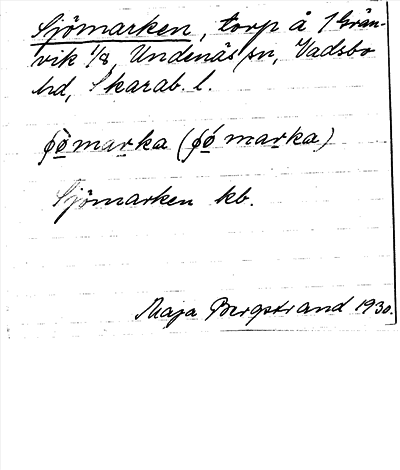 Sjömarken, torp å 1 Grän-
vik 1/8, Undenäs sn, Vadsbo
hd, Skarab. l.
ʃò̱marka (ʃó̱ marka)
Sjömarken kb.
Maja Bergstrand 1930.